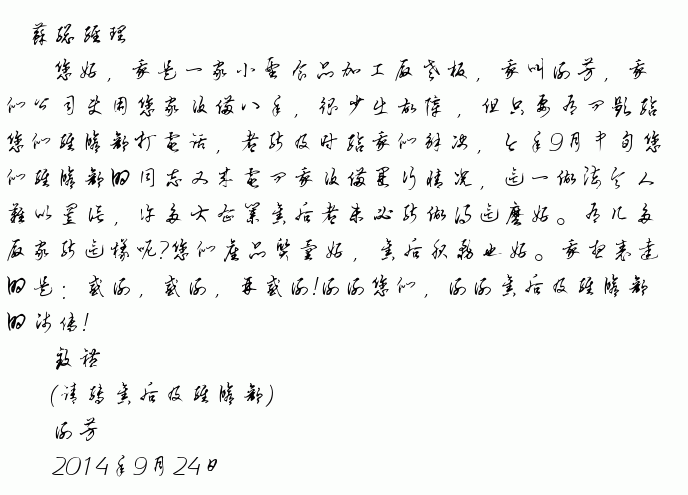 苏总经理
您好，我是一家小型食品加工厂老板，我叫谢芳，我
们公司使用您家设备八年，很少出故障，但只要有问题给
您们经销部打电话，都能及时给我们解决，今年9月中旬您
们经销部的同志又来电问我设备运行情况，这一做法令人
难以置信，许多大企业售后都未必能做得这麽好。有几多
厂家能这样呢?您们产品质量好，售后服务也好。我想表达
的是：感谢，感谢，再感谢!谢谢您们，谢谢售后及经销部
的沈倩!
致礼
(请转售后及经销部)
谢芳
2014年9月24日